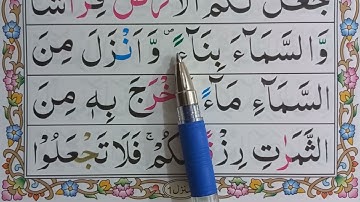 جَعَلَ لَكُمُ الْاَرْضَ فِرَاشًا
وَّالسَّمَآءَ بِنَآءً ۪ وَّاَنْزَلَ مِنَ
السَّمَآءِ مَآءً فَاَخْرَجَ بِهٖ مِنَ
الثَّمَرٰتِ رِزْقًا لَّكُمْ ۚ فَلَا تَجْعَلُوْا